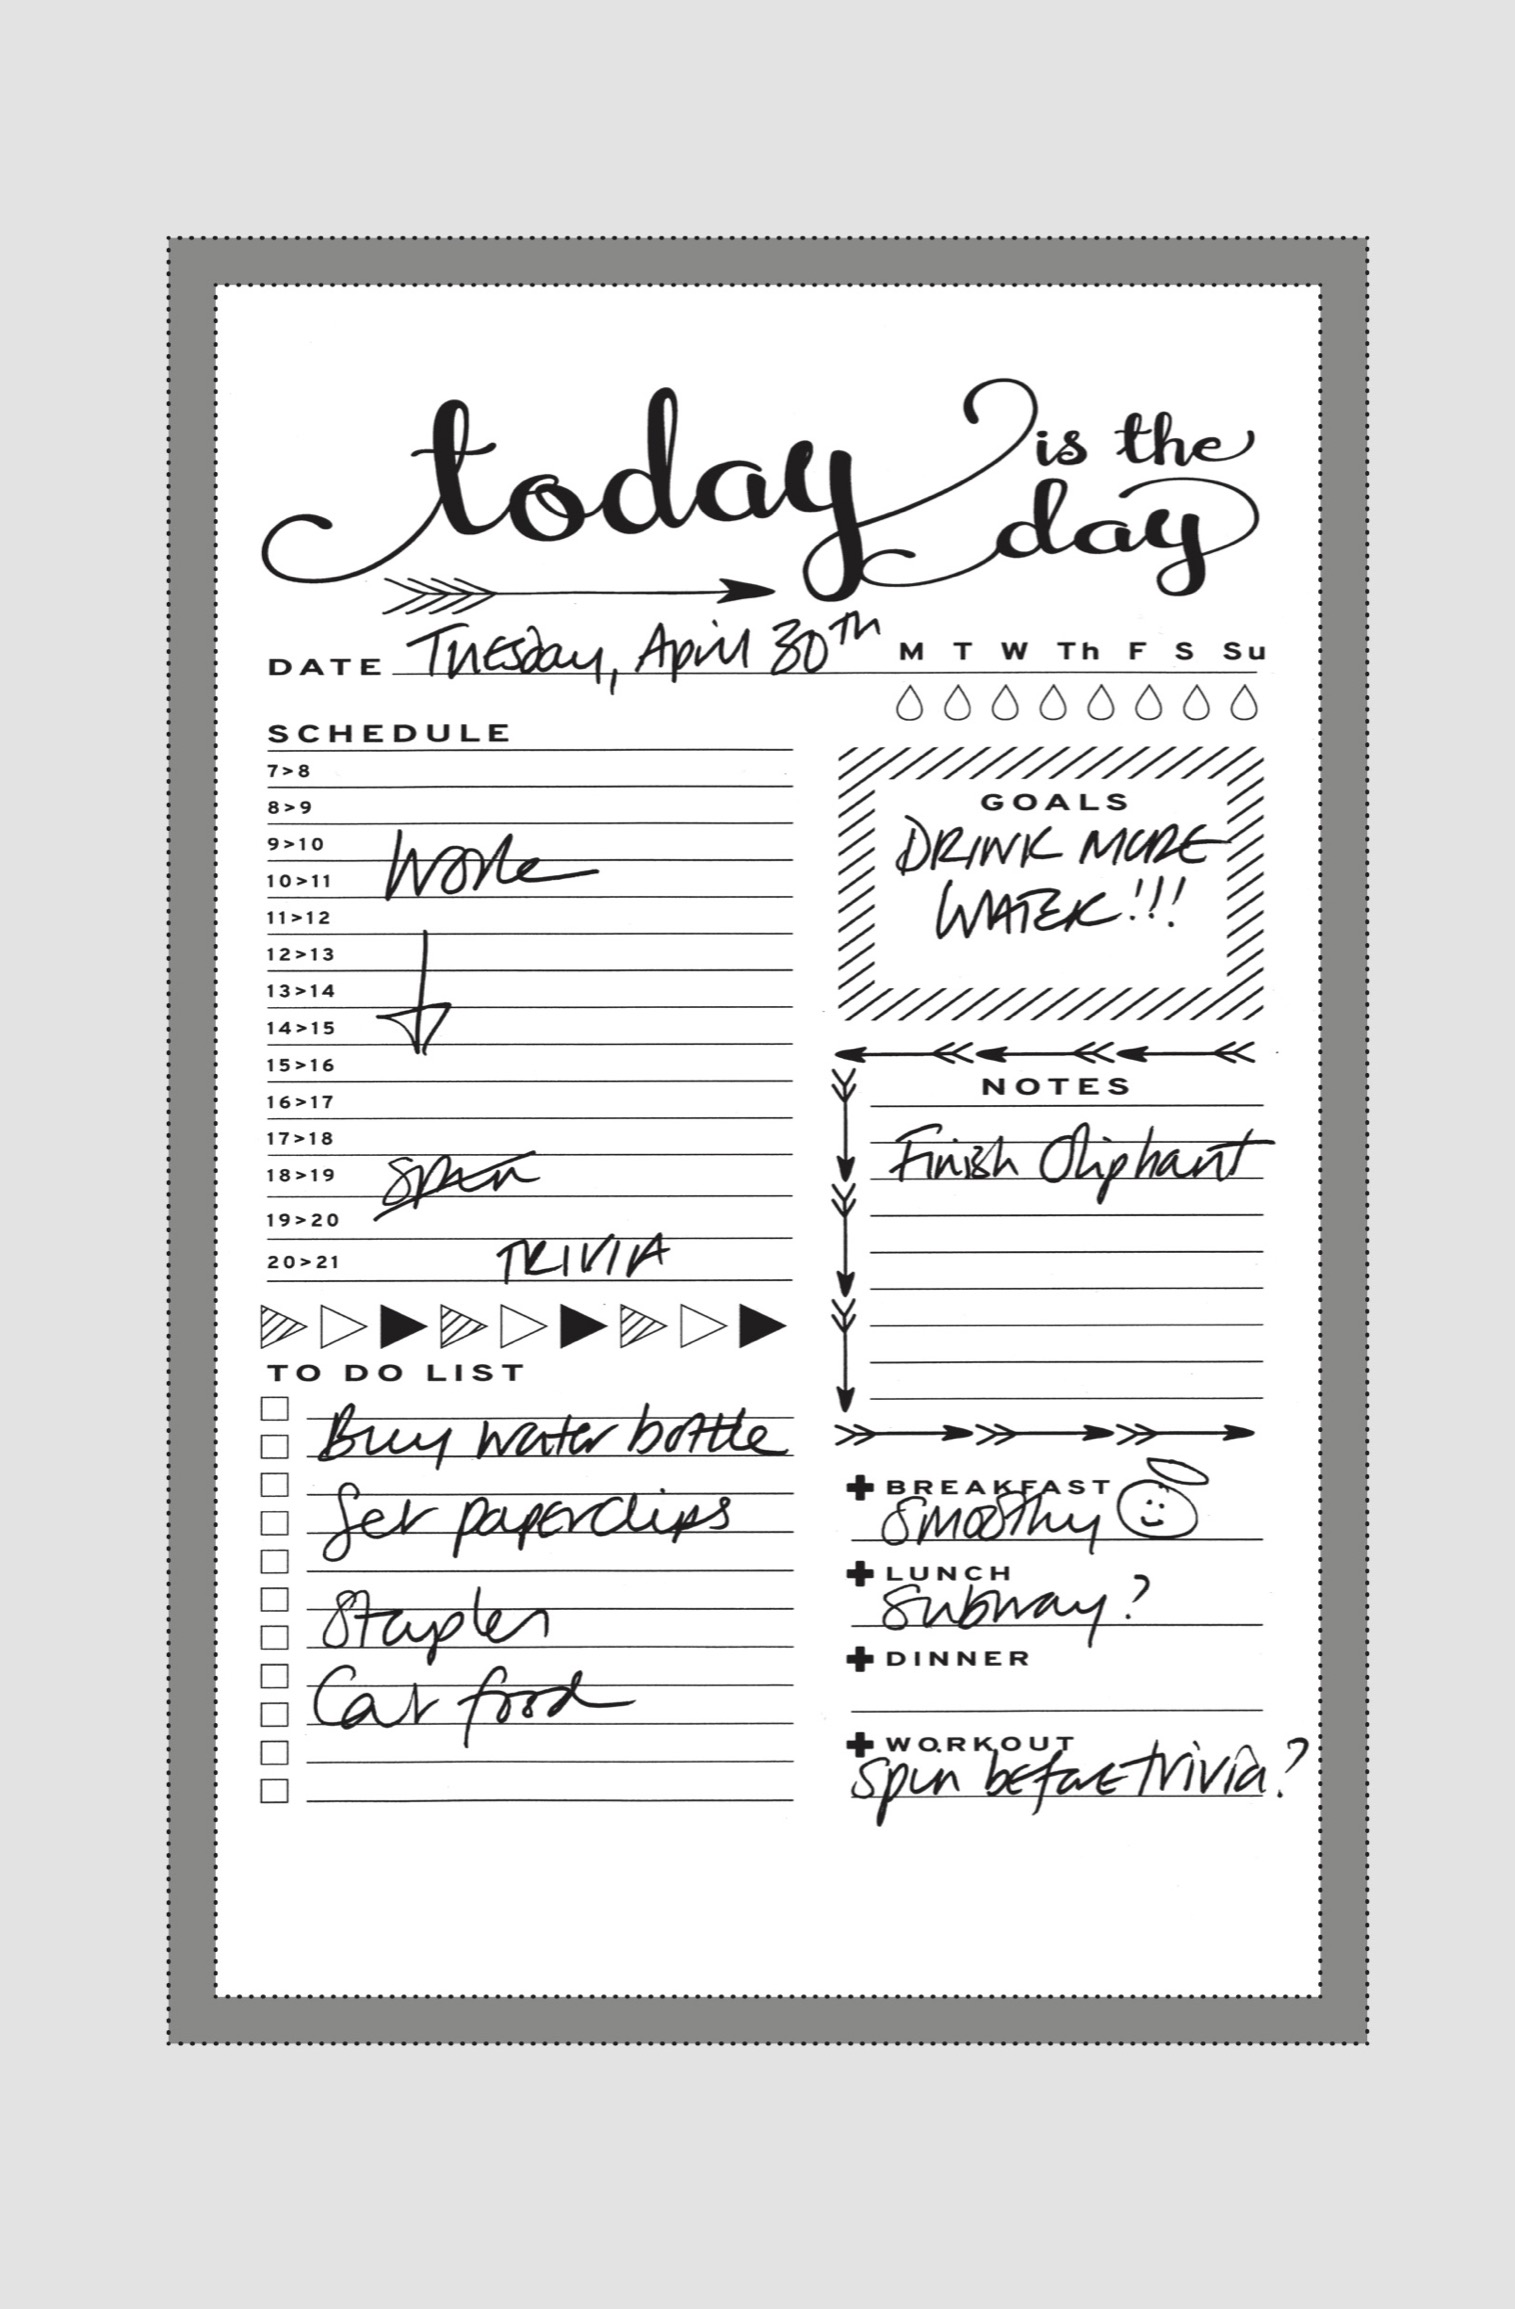 today is the day
DATE Tuesday, April 30th M T W Th F S Su
SCHEDULE
7>8
8>9
9>10 Work
10>11
11>12
12>13
13>14
14>15
15>16
16>17
17>18
18>19 Spin
19>20
20>21 TRIVIA
TO DO LIST
Buy water bottle
Get paperclips
Stapler
Cat food
GOALS
DRINK MORE
WATER!!!
NOTES
Finish Oliphant
BREAKFAST
Smoothy
LUNCH
Subway?
DINNER
WORKOUT
Spin before trivia?